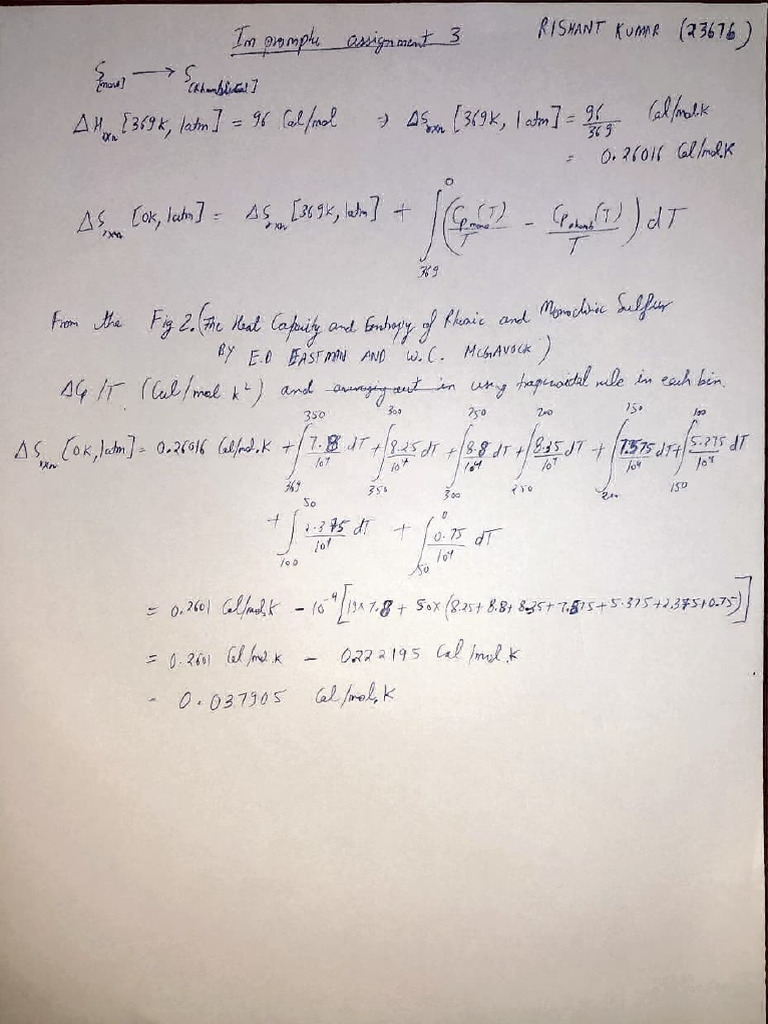 Impromptu assignment 3
RISHANT KUMAR (23676)
S[mono] → S[Rhombhical]
ΔH_rxn [369K, 1atm] = 96 Cal/mol ⇒ ΔS_rxn [369K, 1atm] = 96/369 Cal/mol.K
= 0.26016 Cal/mol.K
ΔS_rxn [0K, 1atm] = ΔS_rxn [369K, 1atm] + ∫_369^0 (Cp_mono(T)/T - Cp_rhomb(T)/T) dT
From the Fig 2. (The Heat Capacity and Entropy of Rhombic and Monoclinic Sulfur
BY E.D EASTMAN AND W.C. McGAVOCK)
ΔCp/T (Cal/mol K²) and in using trapezoidal rule in each bin.
ΔS_rxn [0K, 1atm] = 0.26016 Cal/mol.K + ∫_369^350 7.8/10⁴ dT + ∫_350^300 8.25/10⁴ dT + ∫_300^250 8.8/10⁴ dT + ∫_250^200 8.35/10⁴ dT + ∫_200^150 7.575/10⁴ dT + ∫_150^100 5.275/10⁴ dT
+ ∫_100^50 2.375/10⁴ dT + ∫_50^0 0.75/10⁴ dT
= 0.2601 Cal/mol.K - 10⁻⁴ [19×7.8 + 50×(8.25+8.8+8.35+7.875+5.375+2.375+0.75)]
= 0.2601 Cal/mol.K - 0.222195 Cal/mol.K
= 0.037905 Cal/mol.K